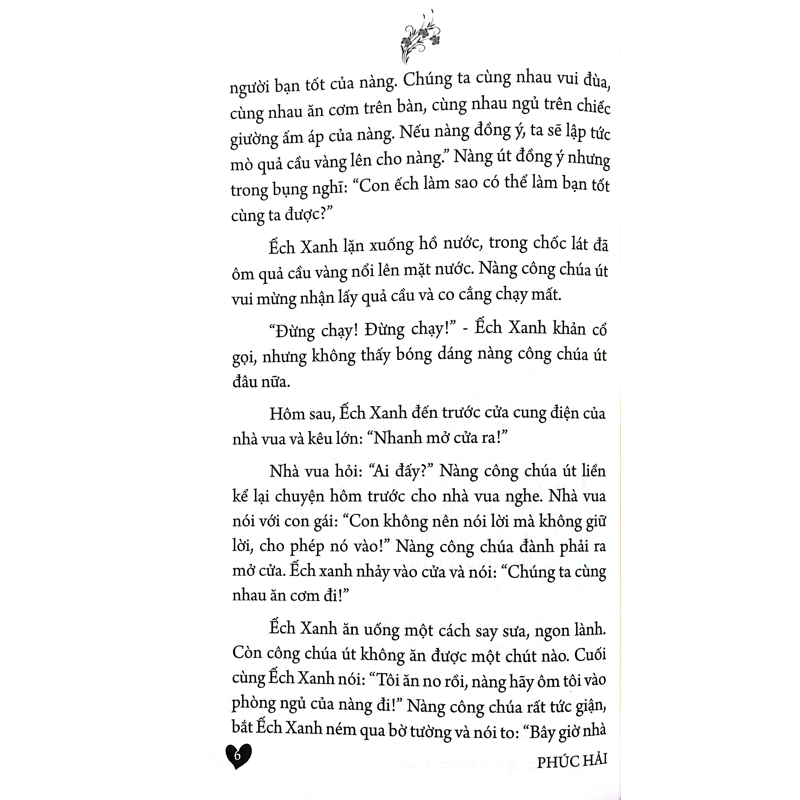 người bạn tốt của nàng. Chúng ta cùng nhau vui đùa,
cùng nhau ăn cơm trên bàn, cùng nhau ngủ trên chiếc
giường ấm áp của nàng. Nếu nàng đồng ý, ta sẽ lập tức
mò quả cầu vàng lên cho nàng.” Nàng út đồng ý nhưng
trong bụng nghĩ: “Con ếch làm sao có thể làm bạn tốt
cùng ta được?”
Ếch Xanh lặn xuống hồ nước, trong chốc lát đã
ôm quả cầu vàng nổi lên mặt nước. Nàng công chúa út
vui mừng nhận lấy quả cầu và co cẳng chạy mất.
“Đừng chạy! Đừng chạy!” - Ếch Xanh khản cổ
gọi, nhưng không thấy bóng dáng nàng công chúa út
đâu nữa.
Hôm sau, Ếch Xanh đến trước cửa cung điện của
nhà vua và kêu lớn: “Nhanh mở cửa ra!”
Nhà vua hỏi: “Ai đấy?” Nàng công chúa út liền
kể lại chuyện hôm trước cho nhà vua nghe. Nhà vua
nói với con gái: “Con không nên nói lời mà không giữ
lời, cho phép nó vào!” Nàng công chúa đành phải ra
mở cửa. Ếch xanh nhảy vào cửa và nói: “Chúng ta cùng
nhau ăn cơm đi!”
Ếch Xanh ăn uống một cách say sưa, ngon lành.
Còn công chúa út không ăn được một chút nào. Cuối
cùng Ếch Xanh nói: “Tôi ăn no rồi, nàng hãy ôm tôi vào
phòng ngủ của nàng đi!” Nàng công chúa rất tức giận,
bắt Ếch Xanh ném qua bờ tường và nói to: “Bây giờ nhà
6
PHÚC HẢI